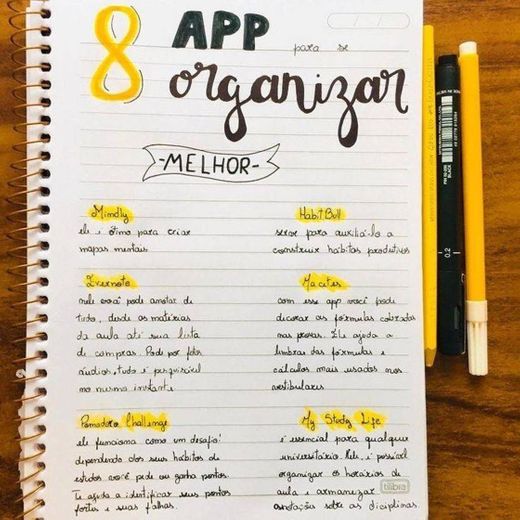 8 APP para se
organizar
MELHOR
Mindly
ele é ótimo para criar
mapas mentais
HabitBull
serve para auxiliá-lo a
construir hábitos produtivos
Evernote
nele você pode anotar de
tudo, desde as matérias
da aula até sua lista
de compras. Pode por fotos
áudios, tudo é pesquisável
no mesmo instante
Macetes
com esse app você pode
decorar as fórmulas cobradas
nas provas. Ele ajuda a
lembrar das fórmulas e
cálculos mais usados nos
vestibulares
Pomodoro Challenge
ele funciona como um desafio!
dependendo dos seus hábitos de
estudos você pede ou ganha pontos.
Te ajuda a identificar seus pontos
fortes e suas falhas.
My Study Life
é essencial para qualquer
universitário. Nele, é possível
organizar os horários de
aula e armanizar
anotação sobre as disciplinas.
tilibra
0.2
BLACK